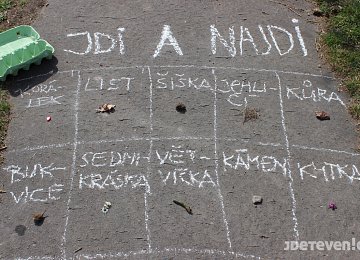 JDI A NAJDI
KORÁ-
LEK
LIST
ŠIŠKA
JEHLI-
ČÍ
KŮRA
BUK-
VICE
SEDMI-
KRÁSKA
VĚT-
VIČKA
KÁMEN
KYTKA
JDETEVEN!CZ